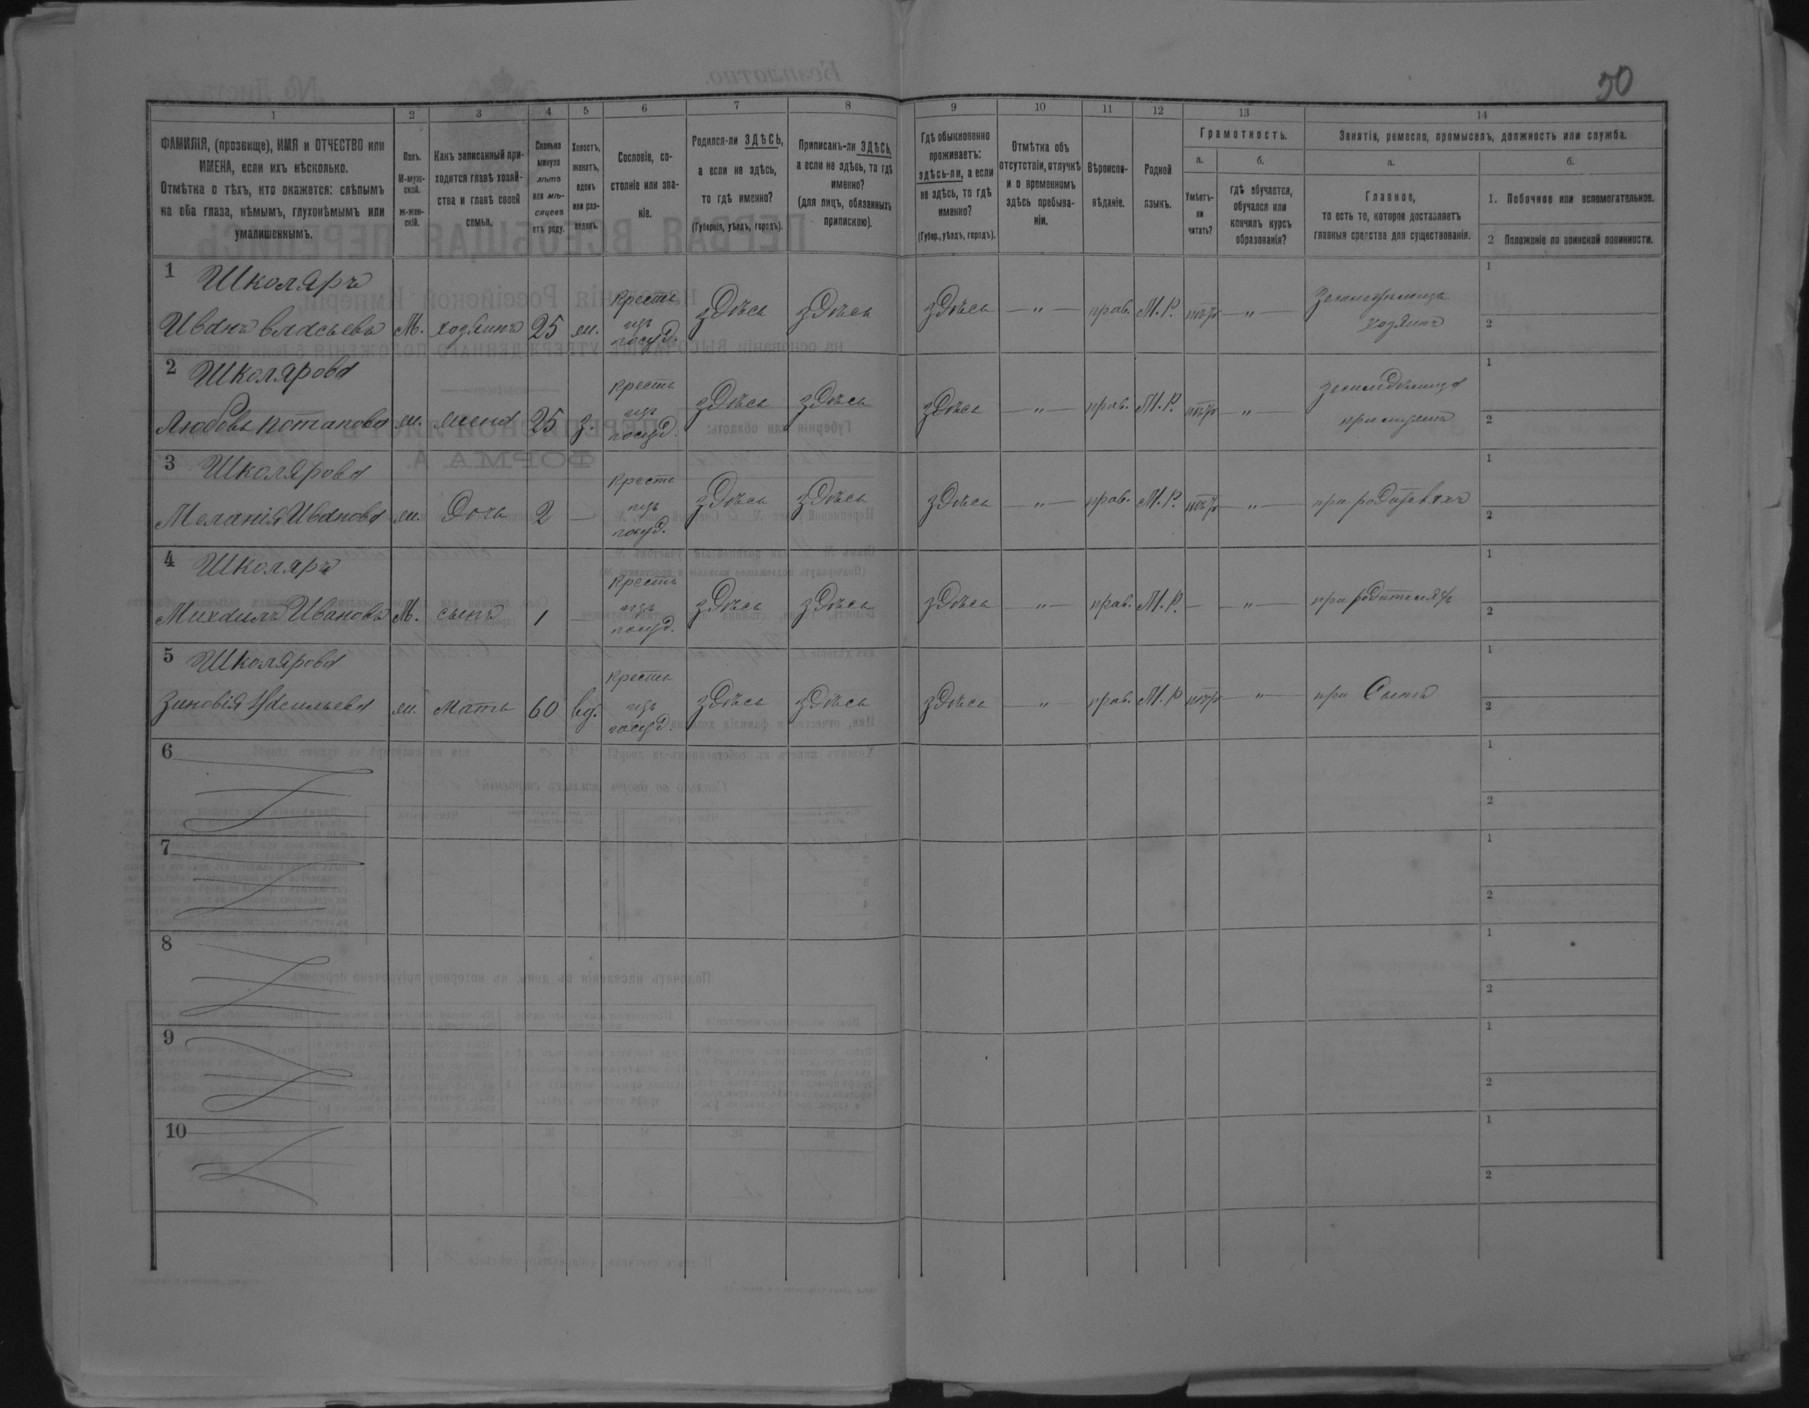 50
1 2 3 4 5 6 7 8 9 10 11 12 13 14
ФАМИЛІЯ, (прозвище), ИМЯ и ОТЧЕСТВО или
ИМЕНА, если ихъ нѣсколько.
Отмѣтка о тѣхъ, кто окажется: слѣпымъ
на оба глаза, нѣмымъ, глухонѣмымъ или
умалишеннымъ.
Полъ.
М-муж-
ской.
Ж-жен-
скій.
Какъ записанный при-
ходится главѣ хозяй-
ства и главѣ своей
семьи.
Сколько
минуло
лѣтъ
или мѣ-
сяцевъ
отъ роду.
Холостъ,
женатъ,
вдовъ
или раз-
веденъ.
Сословіе, со-
стояніе или зва-
ніе.
Родился-ли ЗДѢСЬ,
а если не здѣсь,
то гдѣ именно?
(Губернія, уѣздъ, городъ).
Приписанъ-ли ЗДѢСЬ,
а если не здѣсь, то гдѣ
именно?
(для лицъ, обязанныхъ
припискою).
Гдѣ обыкновенно
проживаетъ:
здѣсь-ли, а если
не здѣсь, то гдѣ
именно?
(Губер., уѣздъ, городъ).
Отмѣтка объ
отсутствіи, отлучкѣ
и о временномъ
здѣсь пребыва-
ніи.
Вѣроиспо-
вѣданіе.
Родной
языкъ.
Грамотность.
а. б.
Умѣетъ-
ли
читать?
гдѣ обучается,
обучался или
кончилъ курсъ
образованія?
Занятія, ремесло, промыселъ, должность или служба.
а. б.
Главное,
то есть то, которое доставляетъ
главныя средства для существованія.
1. Побочное или вспомогательное.
2 Положеніе по воинской повинности.
1 Школяръ
Иванъ Власьевъ М. хозяинъ 25 ж. кресть изъ госуд. здѣсь здѣсь здѣсь — „ — прав. М. Р. — „ — хозяинъ 1 2
2 Школярова
Любовь Потапова ж. жена 25 з. кресть изъ госуд. здѣсь здѣсь здѣсь — „ — прав. М. Р. — „ — при мужѣ 1 2
3 Школярова
Меланія Иванова ж. дочь 2 — кресть изъ госуд. здѣсь здѣсь здѣсь — „ — прав. М. Р. — „ — при родителяхъ 1 2
4 Школяръ
Михаилъ Ивановъ М. сынъ 1 — кресть изъ госуд. здѣсь здѣсь здѣсь — „ — прав. М. Р. — — „ — при родителяхъ 1 2
5 Школярова
Зиновія ж. мать 60 вд. кресть изъ госуд. здѣсь здѣсь здѣсь — „ — прав. М. Р — „ — при сынѣ 1 2
6 1 2
7 1 2
8 1 2
9 1 2
10 1 2